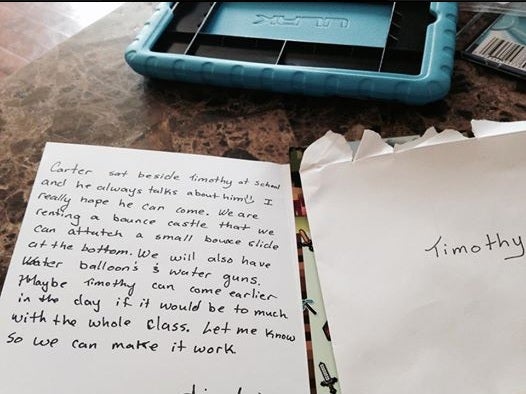 Carter sat beside Timothy at School
and he always talks about him! I
really hope he can come. We are
renting a bounce castle that we
can attatch a small bounce slide
at the bottom. We will also have
Water balloon's & water guns.
Maybe Timothy can come earlier
in the day if it would be to much
with the whole class. Let me know
So we can make it work.
Timothy